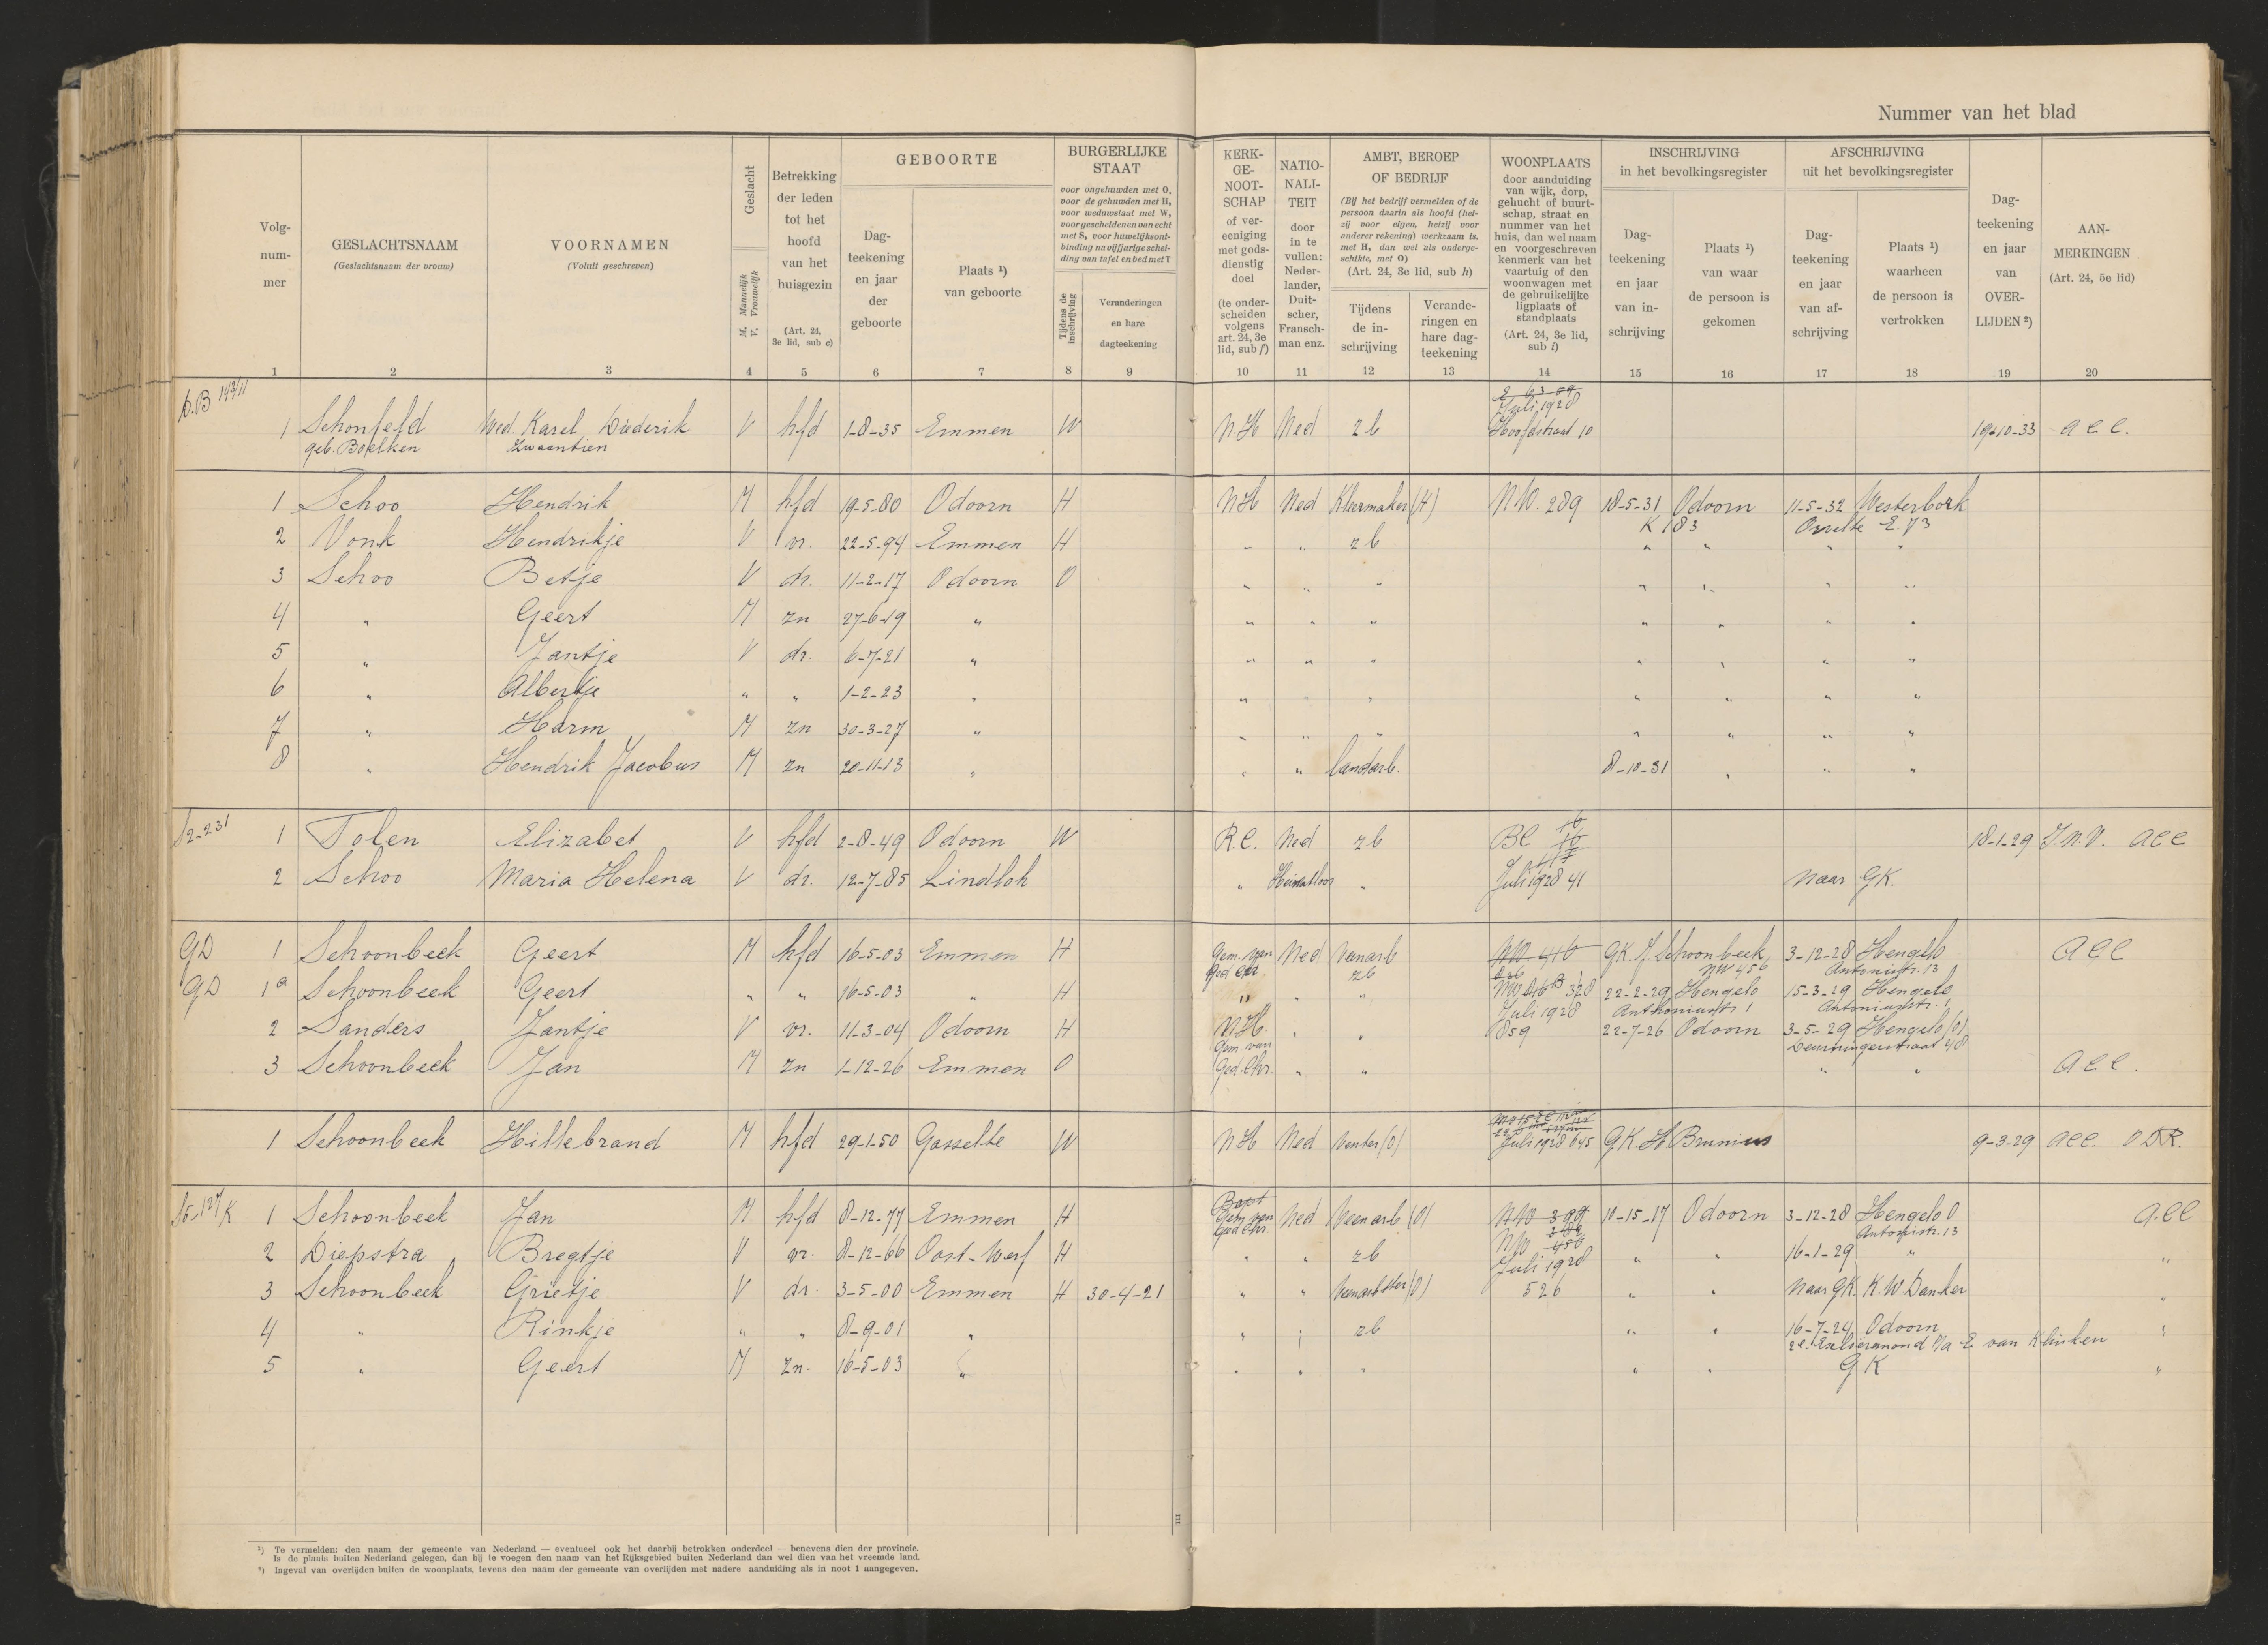 Nummer van het blad
Volg-nummer
GESLACHTSNAAM (Geslachtsnaam der vrouw)
VOORNAMEN (Voluit geschreven)
Geslacht M. Mannelijk V. Vrouwelijk
Betrekking der leden tot het hoofd van het huisgezin (Art. 24, 3e lid, sub c)
GEBOORTE
Dag-teekening en jaar der geboorte
Plaats ¹) van geboorte
BURGERLIJKE STAAT
voor ongehuwden met O, voor de gehuwden met H, voor weduwstaat met W, voor gescheidenen van echt met S, voor huwelijksont-binding na vijfjarige schei-ding van tafel en bed met T
Tijdens de inschrijving
Veranderingen en hare dagteekening
KERK-GE-NOOT-SCHAP of ver-eeniging met gods-dienstig doel (te onder-scheiden volgens art. 24, 3e lid, sub f)
NATIO-NALI-TEIT door in te vullen: Neder-lander, Duit-scher, Fransch-man enz.
AMBT, BEROEP OF BEDRIJF
(Bij het bedrijf vermelden of de persoon daarin als hoofd (het-zij voor eigen, hetzij voor anderer rekening) werkzaam is, met H, dan wel als onderge-schikte, met O)
(Art. 24, 3e lid, sub h)
Tijdens de in-schrijving
Verande-ringen en hare dag-teekening
WOONPLAATS door aanduiding van wijk, dorp, gehucht of buurt-schap, straat en nummer van het huis, dan wel naam en voorgeschreven kenmerk van het vaartuig of den woonwagen met de gebruikelijke ligplaats of standplaats (Art. 24, 3e lid, sub i)
INSCHRIJVING in het bevolkingsregister
Dag-teekening en jaar van in-schrijving
Plaats ¹) van waar de persoon is gekomen
AFSCHRIJVING uit het bevolkingsregister
Dag-teekening en jaar van af-schrijving
Plaats ¹) waarheen de persoon is vertrokken
Dag-teekening en jaar van OVER-LIJDEN ²)
AAN-MERKINGEN (Art. 24, 5e lid)
1 2 3 4 5 6 7 8 9 10 11 12 13 14 15 16 17 18 19 20
Juli 1928
1 Schonfeld Wed. Karel Diederik V hfd 1-8-35 Emmen W N.H Ned zb Hoofdstraat 10 19-10-33 acc.
geb. Boelken Zwaantien
1 Schoo Hendrik M hfd 19-5-80 Odoorn H NH Ned Kleermaker (H) N.W. 289 18-5-31 Odoorn 11-5-32 Westerbork
K 183 Orvelte E. 73
2 Vonk Hendrikje V vr. 22-5-94 Emmen H " " zb " " " "
3 Schoo Betje V dr. 11-2-17 Odoorn O " " " " " " "
4 " Geert M zn 27-6-19 " " " " " " " "
5 " Jantje V dr. 6-7-21 " " " " " " " "
6 " Albertje " " 1-2-23 " " " " " " " "
7 " Harm M zn 30-3-27 " " " " " " " "
8 " Hendrik Jacobus M zn 20-11-13 " " " landarb. 8-10-31 " " "
S2-231 1 Tolen Elizabet V hfd 2-8-49 Odoorn W R.C. Ned zb BC 18-1-29 J.N.V. acc
2 Schoo Maria Helena V dr. 12-7-85 Lindloh " " Juli 1928 41 Naar GK.
GD 1 Schoonbeek Geert M hfd 16-5-03 Emmen H Gem. van Ned veenarb NW 416 GK. J. Schoonbeek 3-12-28 Hengelo acc
God. Chr. zb NW 456 Antoniusstr. 13
GD 1a Schoonbeek Geert " " 16-5-03 " H " " " 328 22-2-29 Hengelo 15-3-29 Hengelo
Juli 1928 Anthoniusstr. 1 Antoniusstr. 1
2 Sanders Jantje V vr. 11-3-04 Odoorn H N.H. " " 859 22-7-26 Odoorn 3-5-29 Hengelo (O)
Gem. van Deurningerstraat 48
3 Schoonbeek Jan M zn 1-12-26 Emmen O God. Chr. " " " " acc.
1 Schoonbeek Hillebrand M hfd 29-1-50 Gasselte W NH Ned venter (O) Juli 1928 645 GK H Brunius 9-3-29 acc. ODR.
Bapt
S5-127 K 1 Schoonbeek Jan M hfd 8-12-77 Emmen H Gem. van God. Chr. Ned Veenarb (O) NW 10-15-17 Odoorn 3-12-28 Hengelo O acc
Antoniusstr. 13
2 Diepstra Bregtje V vr. 8-12-66 Oost-Werf H " " zb NW 456 " " 16-1-29 " "
Juli 1928
3 Schoonbeek Grietje V dr. 3-5-00 Emmen H 30-4-21 " " Veenarbster (O) 526 " " Naar GK. K. W. Danker "
4 " Rinkje " " 8-9-01 " " " zb " " 16-7-24 Odoorn "
2e Exloërmond p/a E van Klinken
5 " Geert M zn. 16-5-03 " " " " " " GK "
III
¹) Te vermelden: den naam der gemeente van Nederland — eventueel ook het daarbij betrokken onderdeel — benevens dien der provincie.
Is de plaats buiten Nederland gelegen, dan bij te voegen den naam van het Rijksgebied buiten Nederland dan wel dien van het vreemde land.
²) Ingeval van overlijden buiten de woonplaats, tevens den naam der gemeente van overlijden met nadere aanduiding als in noot 1 aangegeven.